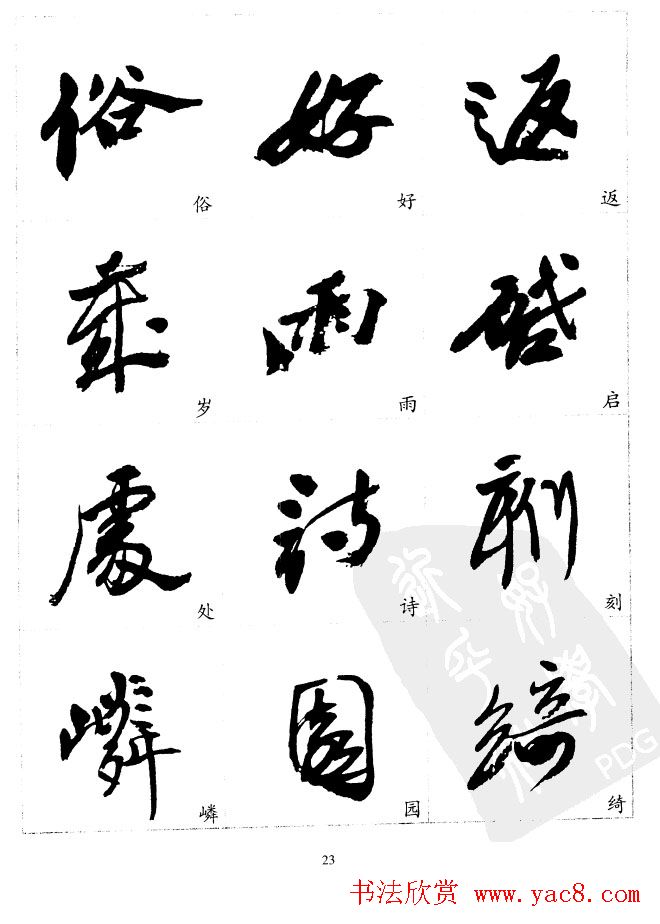 俗 好 返
俗 好 返
歲 雨 啟
岁 雨 启
處 詩 刻
处 诗 刻
嶙 園 綺
嶙 园 绮
PDG
23
书法欣赏 www.yac8.com